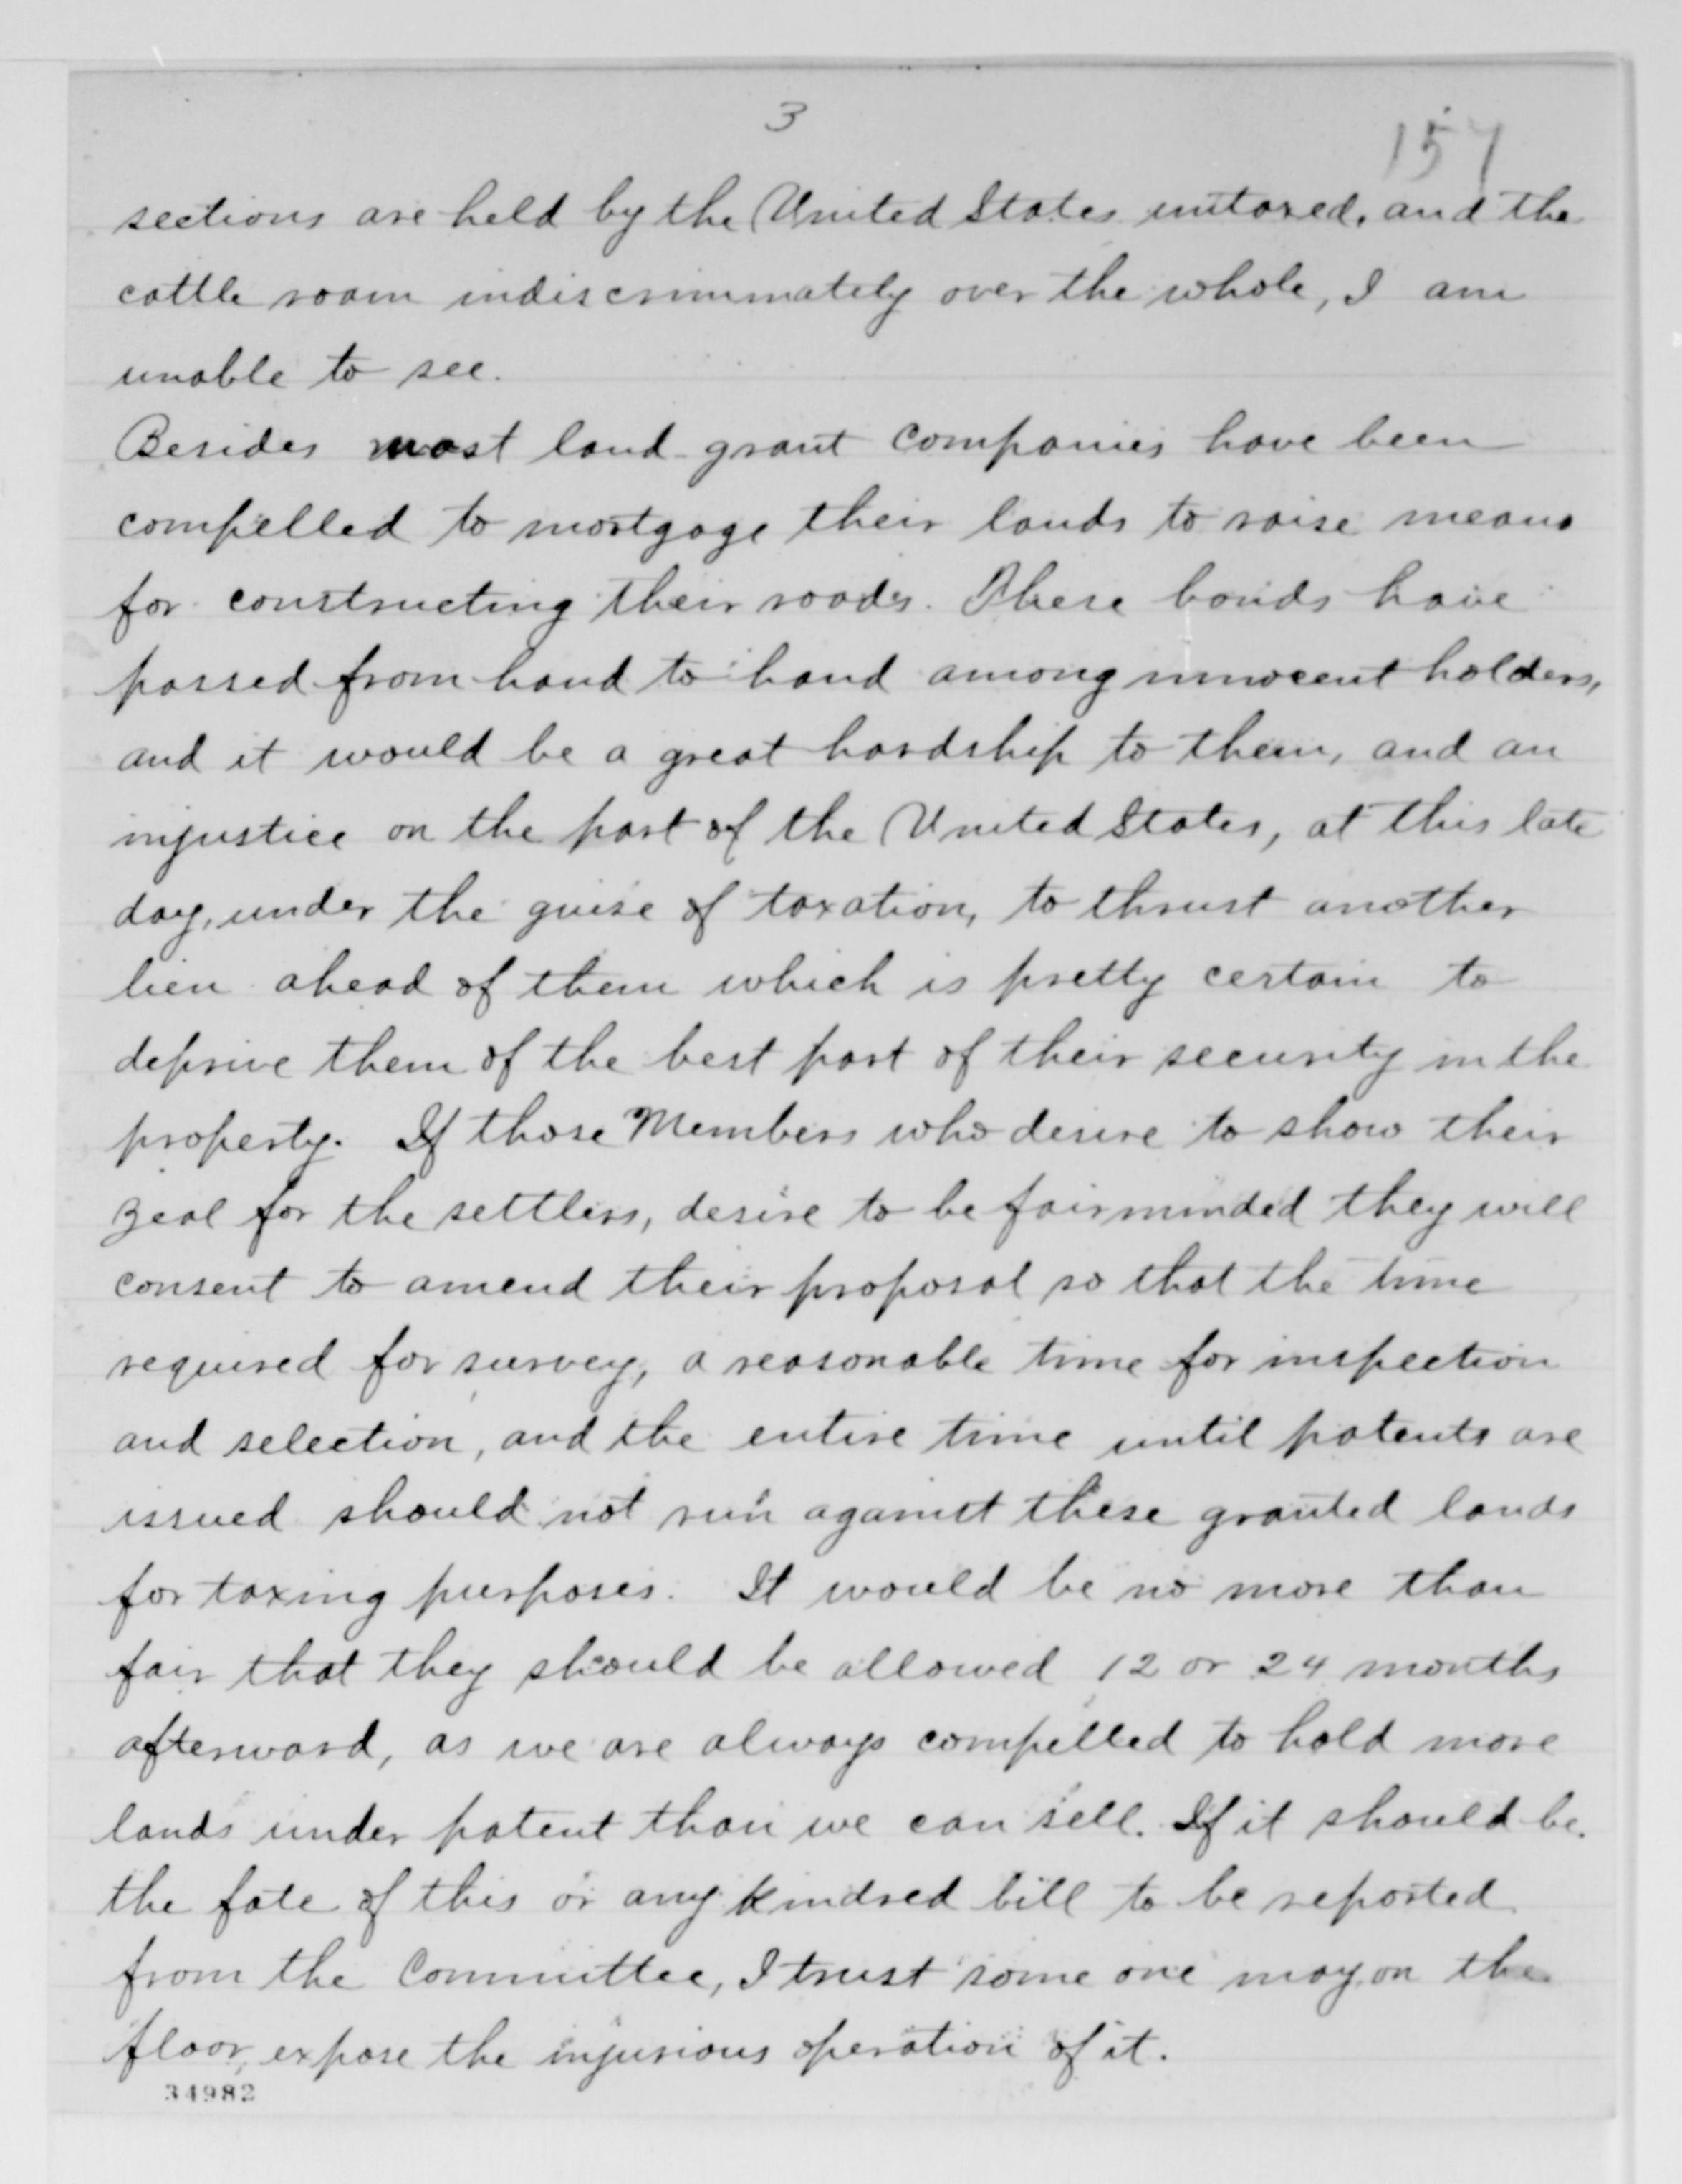 3
157
sections are held by the United States untaxed, and the
cattle roam indiscriminately over the whole, I am
unable to see.
Besides most land-grant companies have been
compelled to mortgage their lands to raise means
for constructing their roads. These bonds have
passed from hand to hand among innocent holders,
and it would be a great hardship to them, and an
injustice on the part of the United States, at this late
day, under the guise of taxation, to thrust another
lien ahead of them which is pretty certain to
deprive them of the best part of their security in the
property. If those Members who desire to show their
zeal for the settlers, desire to be fairminded they will
consent to amend their proposal so that the time
required for survey, a reasonable time for inspection
and selection, and the entire time until patents are
issued should not run against these granted lands
for taxing purposes. It would be no more than
fair that they should be allowed 12 or 24 months
afterward, as we are always compelled to hold more
lands under patent than we can sell. If it should be
the fate of this or any kindred bill to be reported
from the Committee, I trust some one may, on the
floor, expose the injurious operation of it.
34982